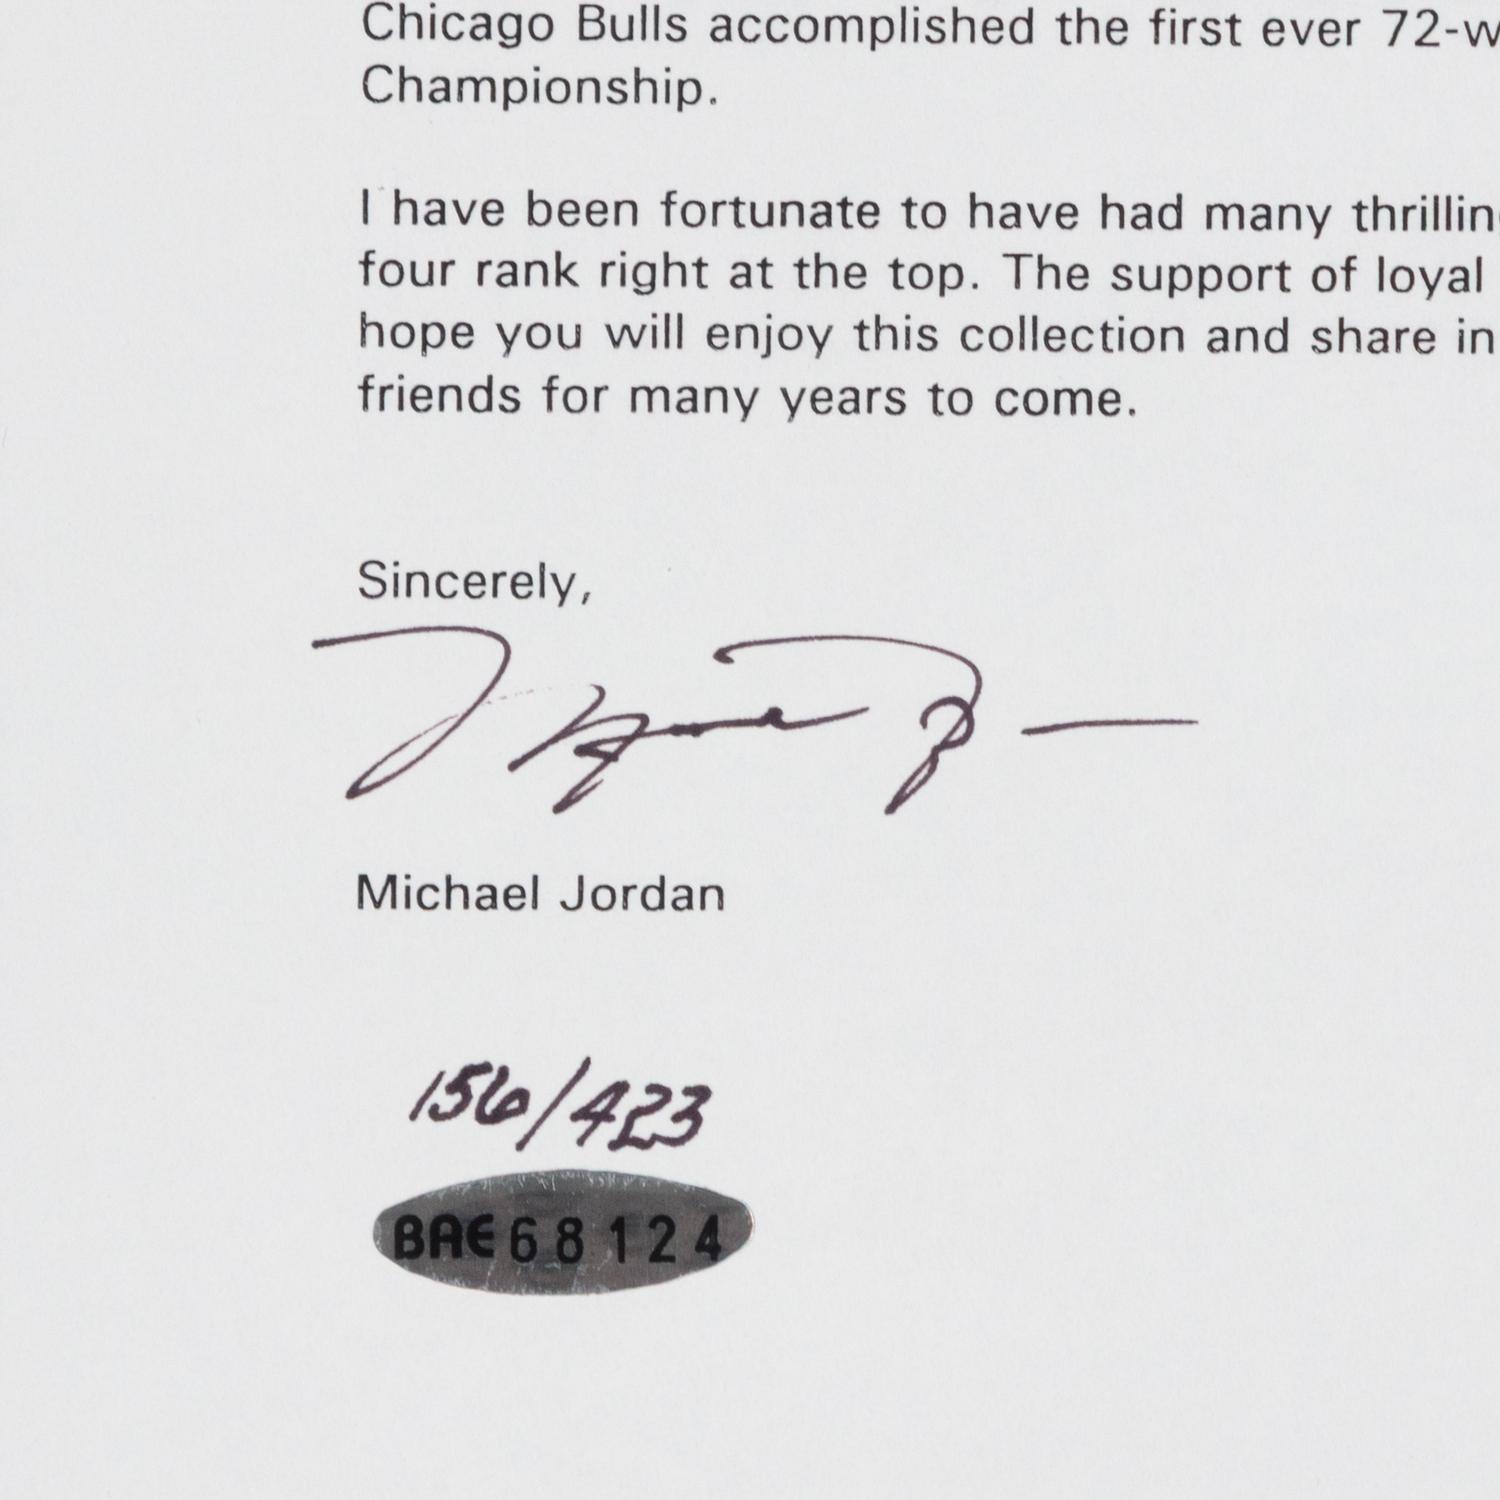 Chicago Bulls accomplished the first ever 72-w
Championship.
I have been fortunate to have had many thrillin
four rank right at the top. The support of loyal
hope you will enjoy this collection and share in
friends for many years to come.
Sincerely,
Michael Jordan
156/423
BAE68124